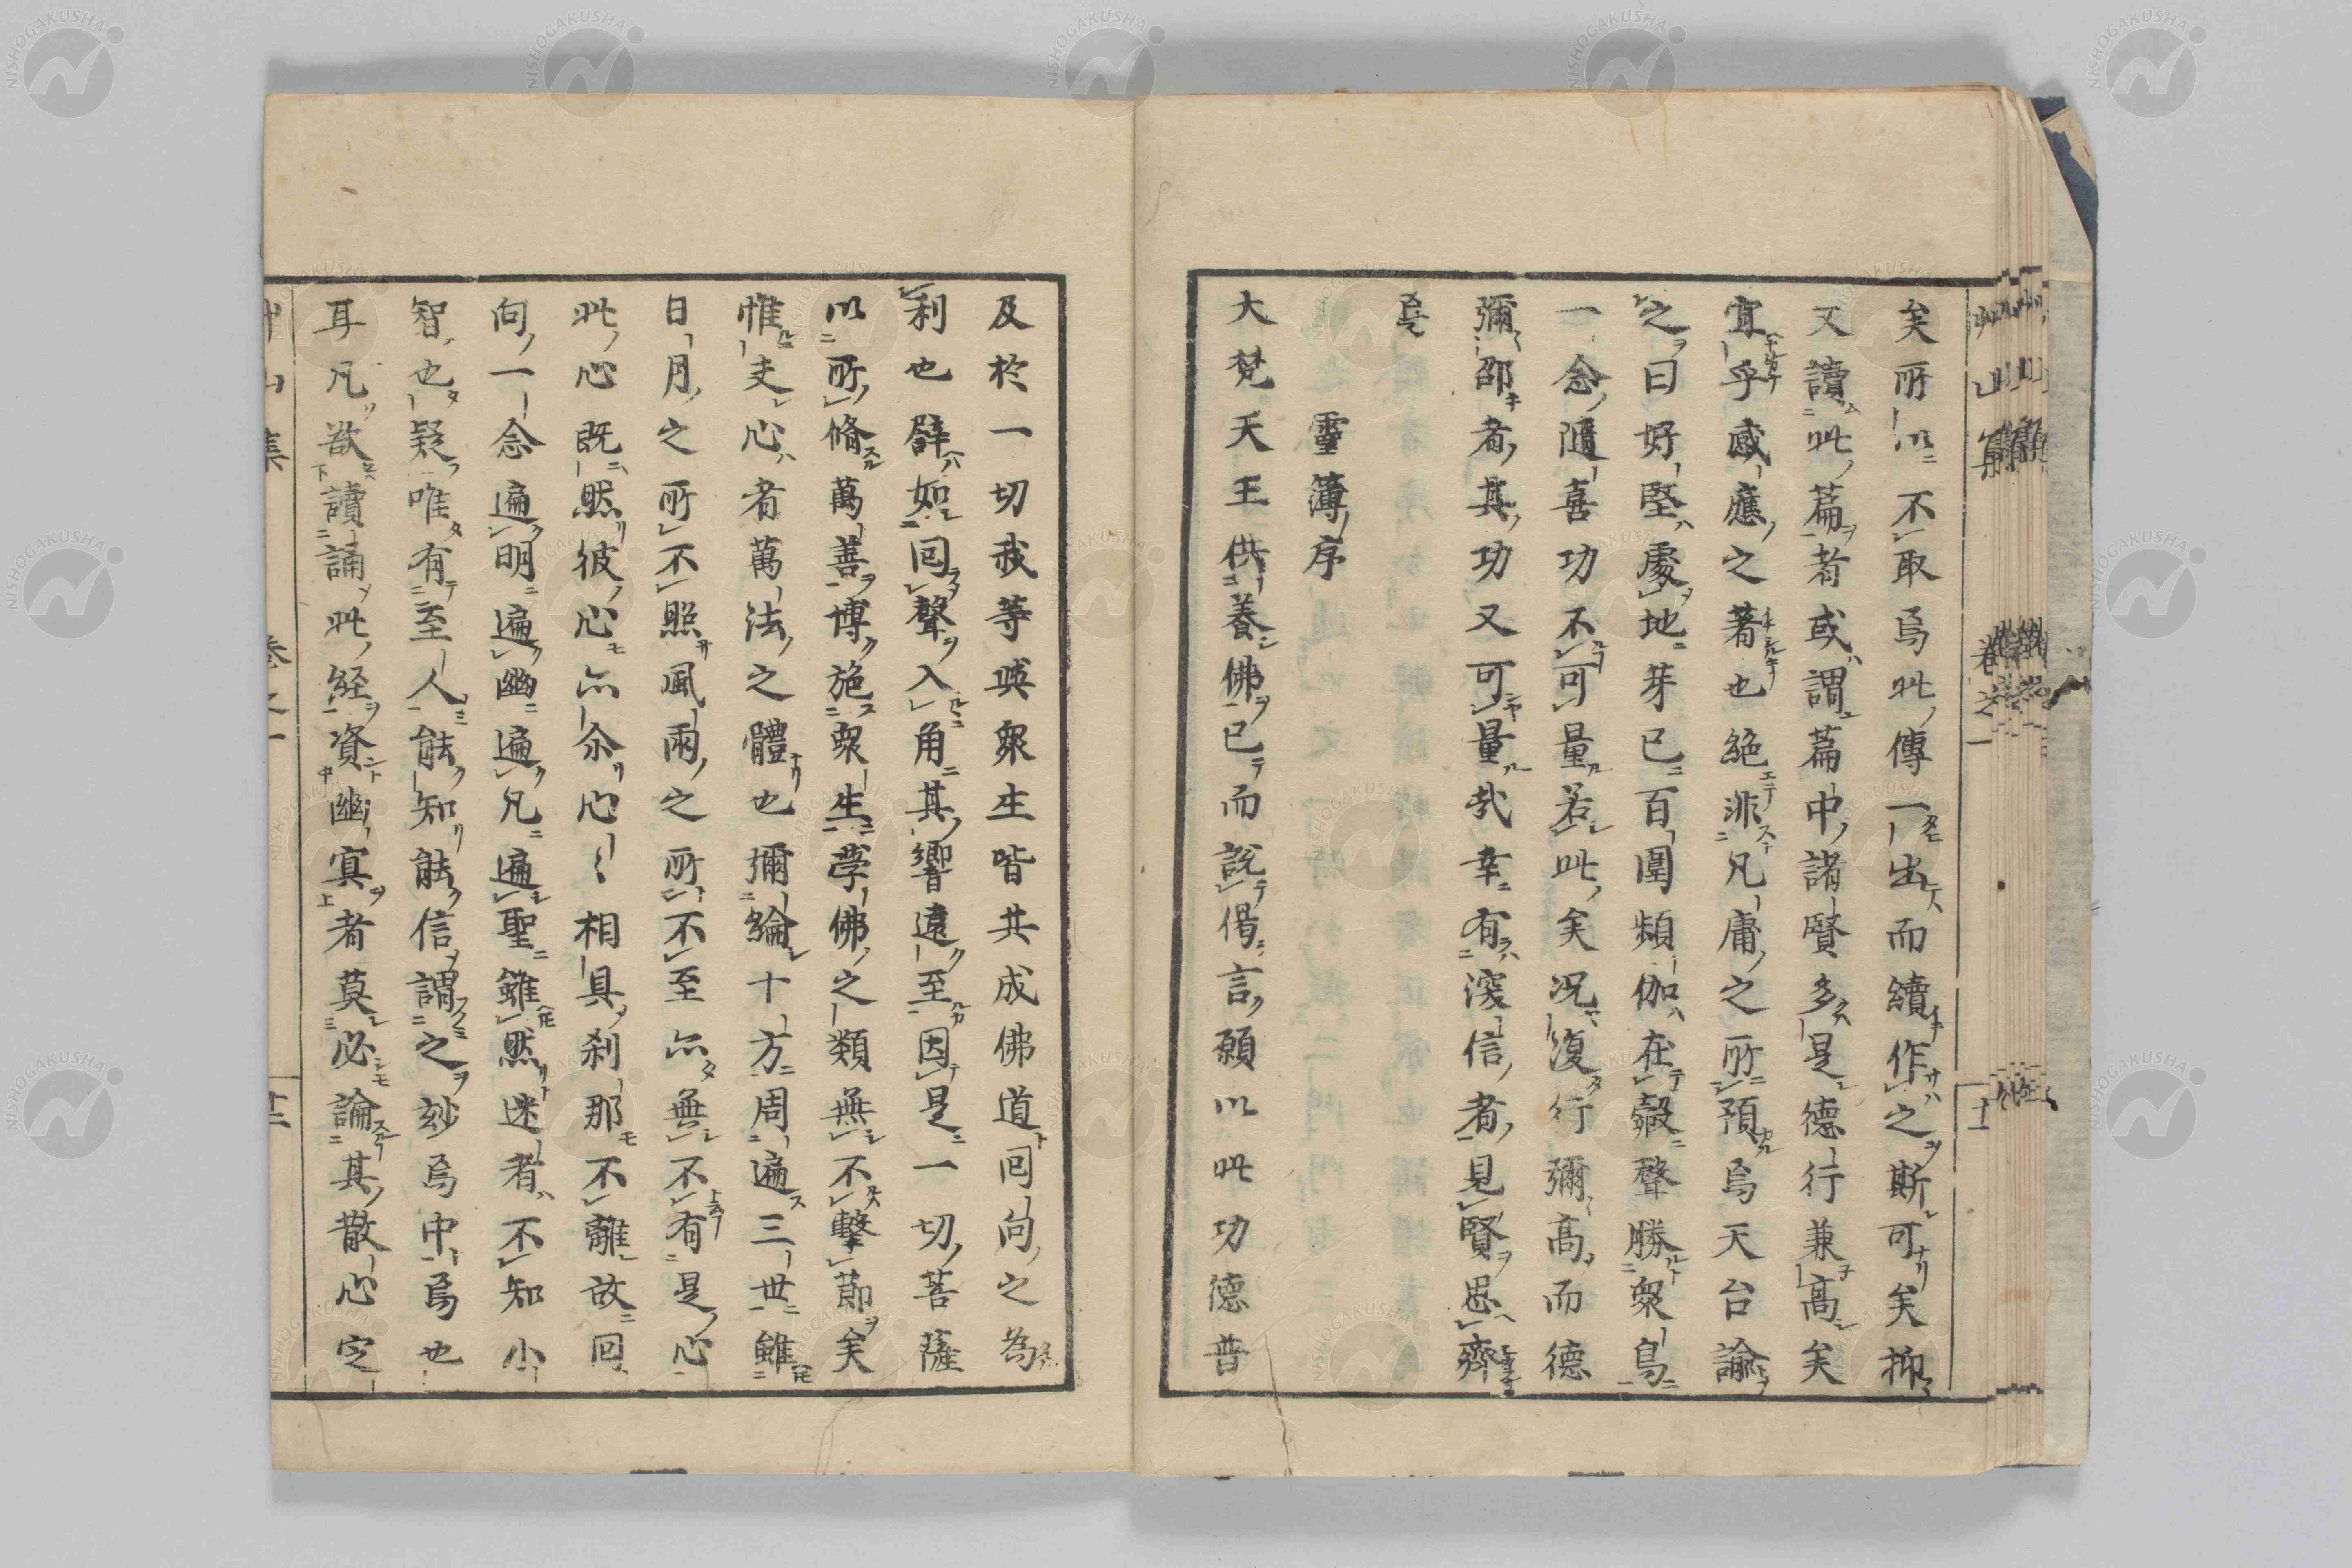 矣所以不取焉此傳一出而續作之斯可矣抑
又讀此篇者或謂篇中諸賢多是德行兼高矣
宜乎感應之著也絕非凡庸之所預焉天台諭
之曰好堅處地芽已百圍頻伽在㲉聲勝衆鳥
一念隨喜功不可量若此矣況復行彌高而德
彌邵者其功又可量哉幸有深信者見賢思齊
焉
靈簿序
大梵天王供養佛已而說偈言願以此功德普
及於一切我等與衆生皆共成佛道回向之為
利也辟如回聲入角其響遠至因是一切菩薩
以所脩萬善博施衆生學佛之類無不擊節矣
惟夫心者萬法之體也彌綸十方周遍三世雖
日月之所不照風雨之所不至亦無不有是心
此心既然彼心亦尒心〻相具刹那不離故回
向一念遍明遍幽遍凡遍聖雖然迷者不知小
智也疑唯有至人能知能信謂之玅焉中焉也
耳凡欲讀誦此経資幽冥者莫必論其散心定
艸山集 卷之一 十二